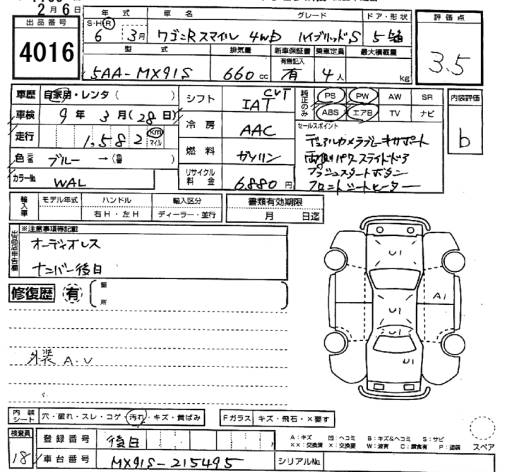 2月6日
出品番号 4016
年式 S・H・R 6年 3月
グレード ワゴンRスマイル 4WD ハイブリッドS
ドア・形状 5
型式 5AA-MX91S
排気量 660cc
新車保証書 有無記入 有
乗車定員 4人
最大積載量 kg
評価点 3.5
車歴 自家用・レンタ( )
車検 9年 3月(28日)
走行 1,582 Km マイル
色 ブルー →( )
カラー No. WAL
シフト CVT IAT
冷房 AAC
燃料 ガソリン
リサイクル料金 6,880円
純正のみ PS PW AW SR
ABS エアB TV ナビ
内装評価 b
セールスポイント
デュアルカメラブレーキサポート
両側パワースライドドア
プッシュスタートボタン
フロントシートヒーター
輸入車 モデル年式 ハンドル 右H・左H 輸入区分 ディーラー・並行
書類有効期限 月 日迄
※注意事項等記載
オーディオレス
ナンバー後日
修復歴 有 箇所
外装 A.U
U1
U1
U1
A1
内装シート 穴・破れ・スレ・コゲ・汚れ・キズ・黄ばみ
Fガラス キズ・飛石・×要す
検査員 18
登録番号 後日
車台番号 MX91S-215495
シリアルNo.
A:キズ 凹:ヘコミ B:キズ&ヘコミ S:サビ
××:交換済 ×:要交換 W:波有 C:腐食有 P:塗装
スペア